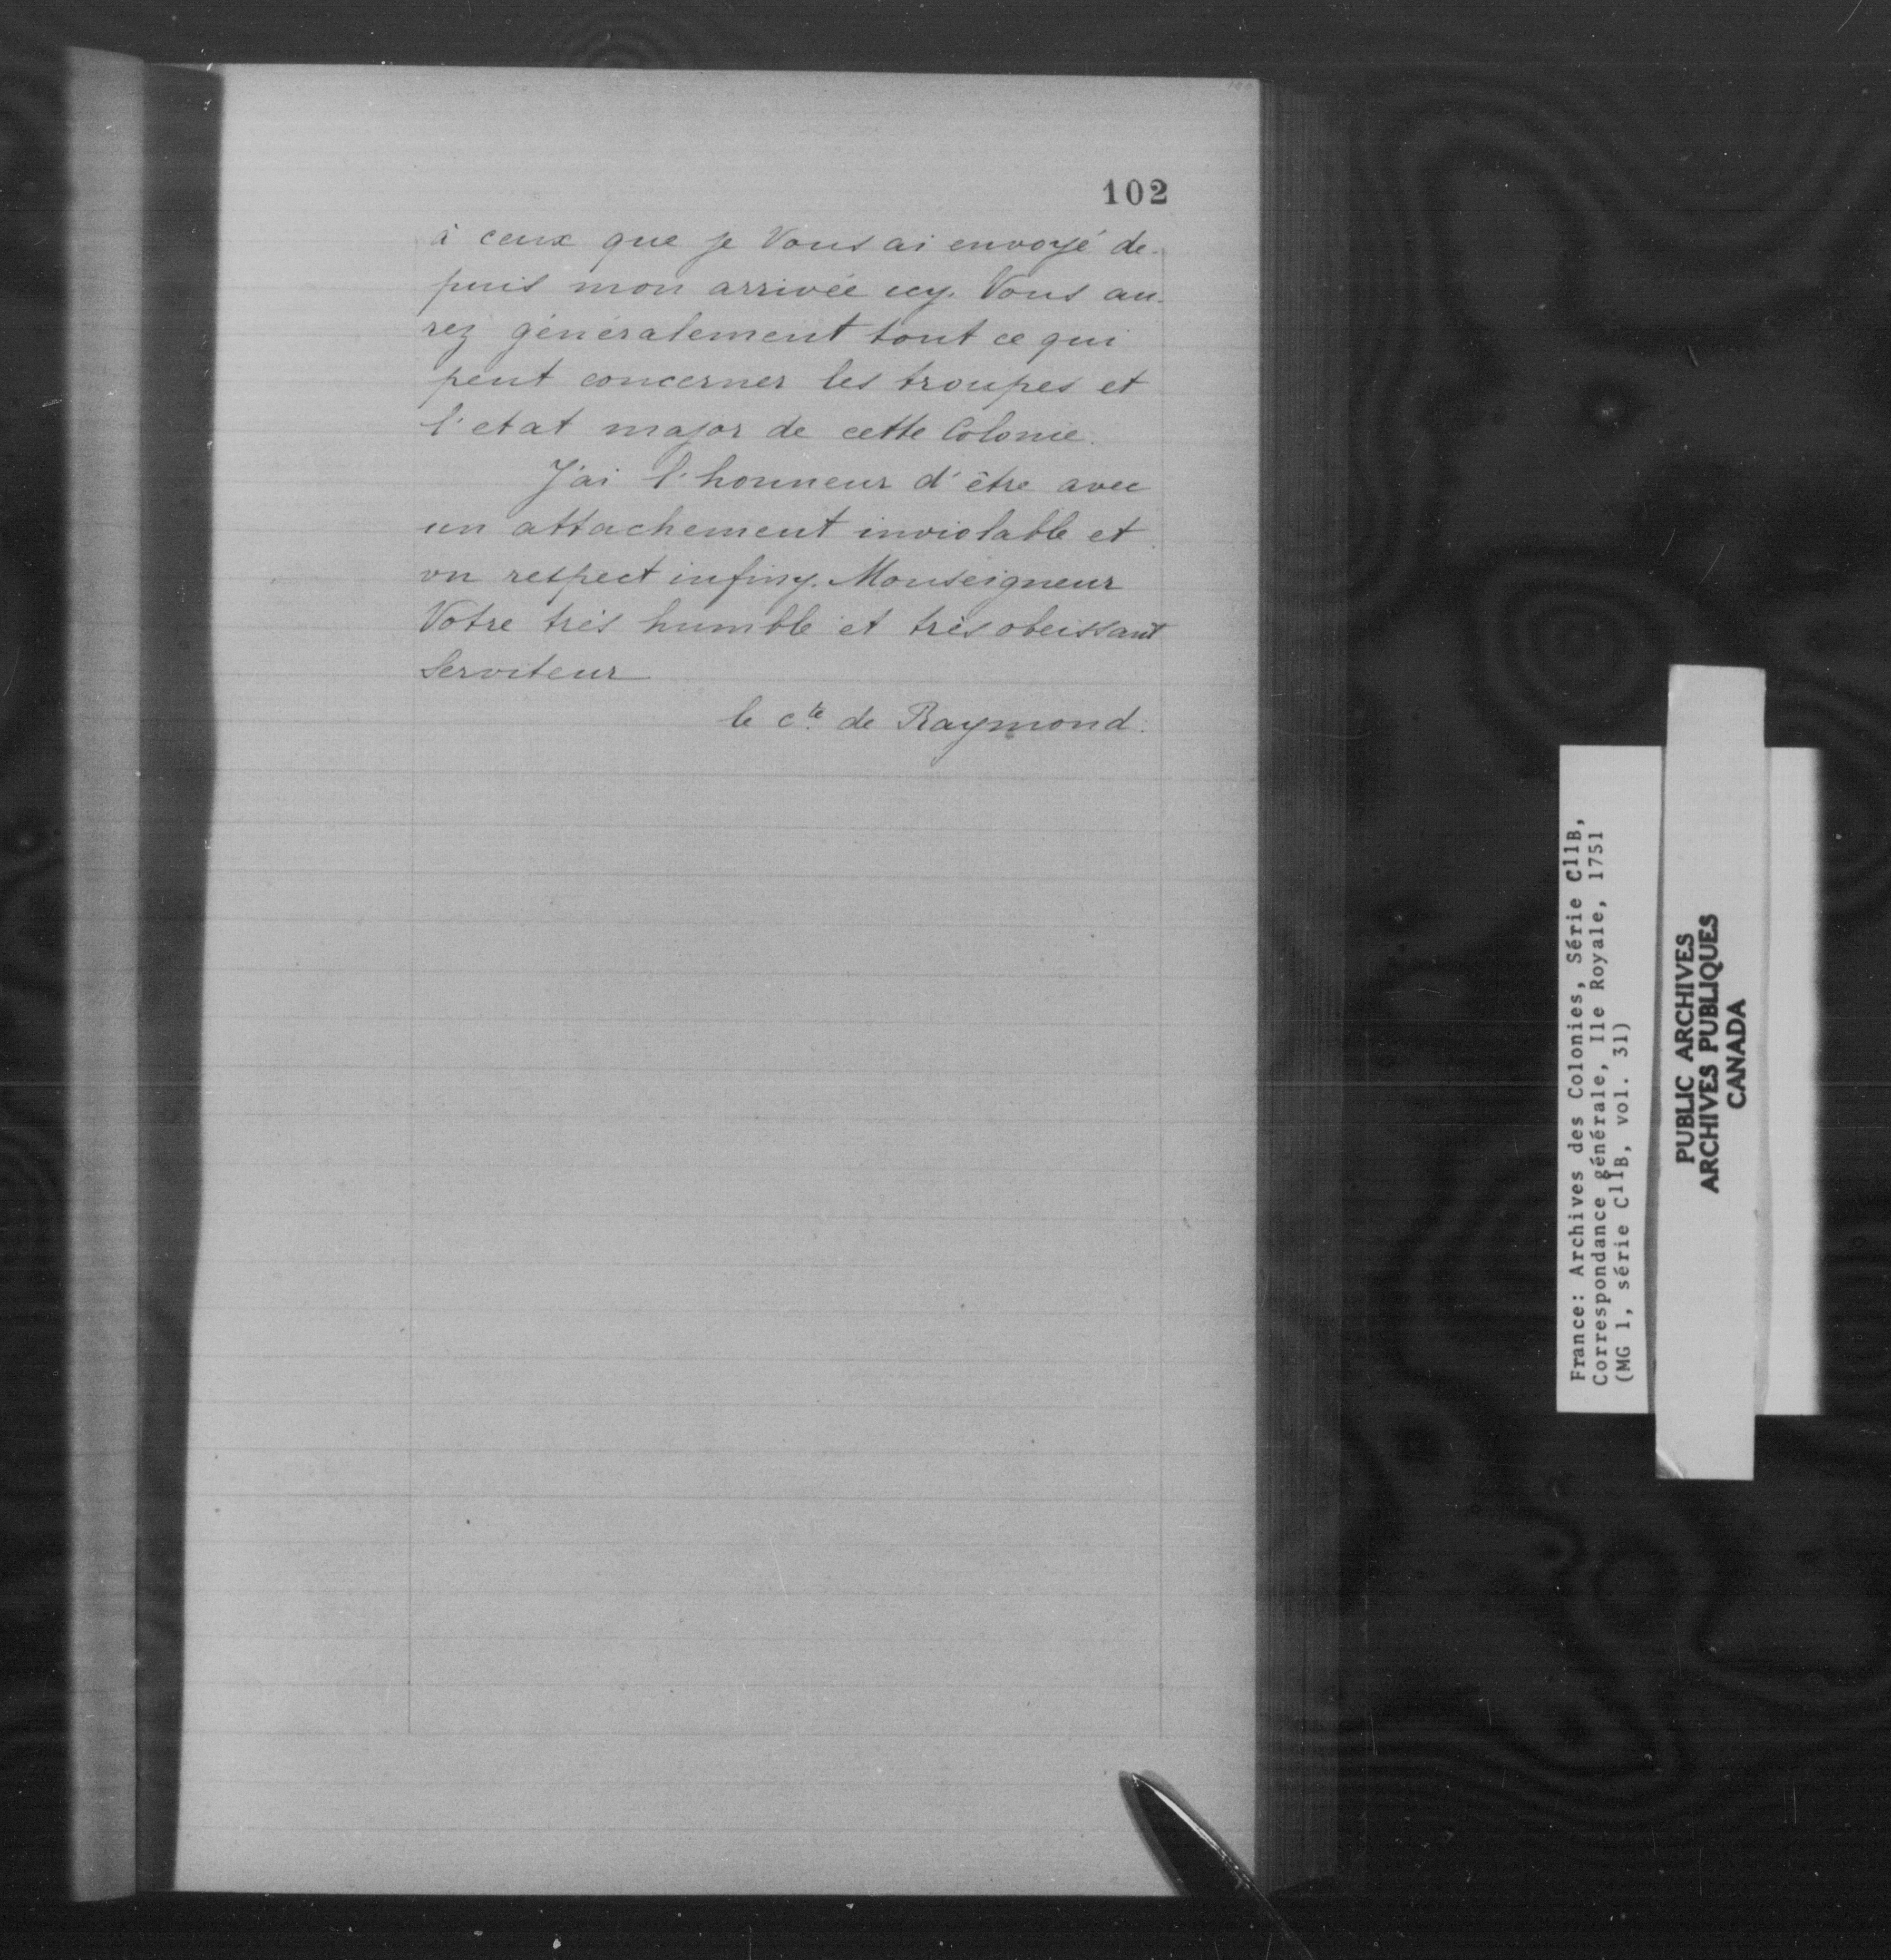 102
à ceux que je Vous ai envoyé de-
puis mon arrivée icy. Vous au-
rez généralement tout ce qui
peut concerner les troupes et
l'etat major de cette Colonie.
J'ai l'honneur d'être avec
un attachement inviolable et
un respect infiny. Monseigneur
Votre très humble et très obeissant
Serviteur
le cte de Raymond.
France: Archives des Colonies, Série C11B,
Correspondance générale, Ile Royale, 1751
(MG 1, série C11B, vol. 31)
PUBLIC ARCHIVES
ARCHIVES PUBLIQUES
CANADA